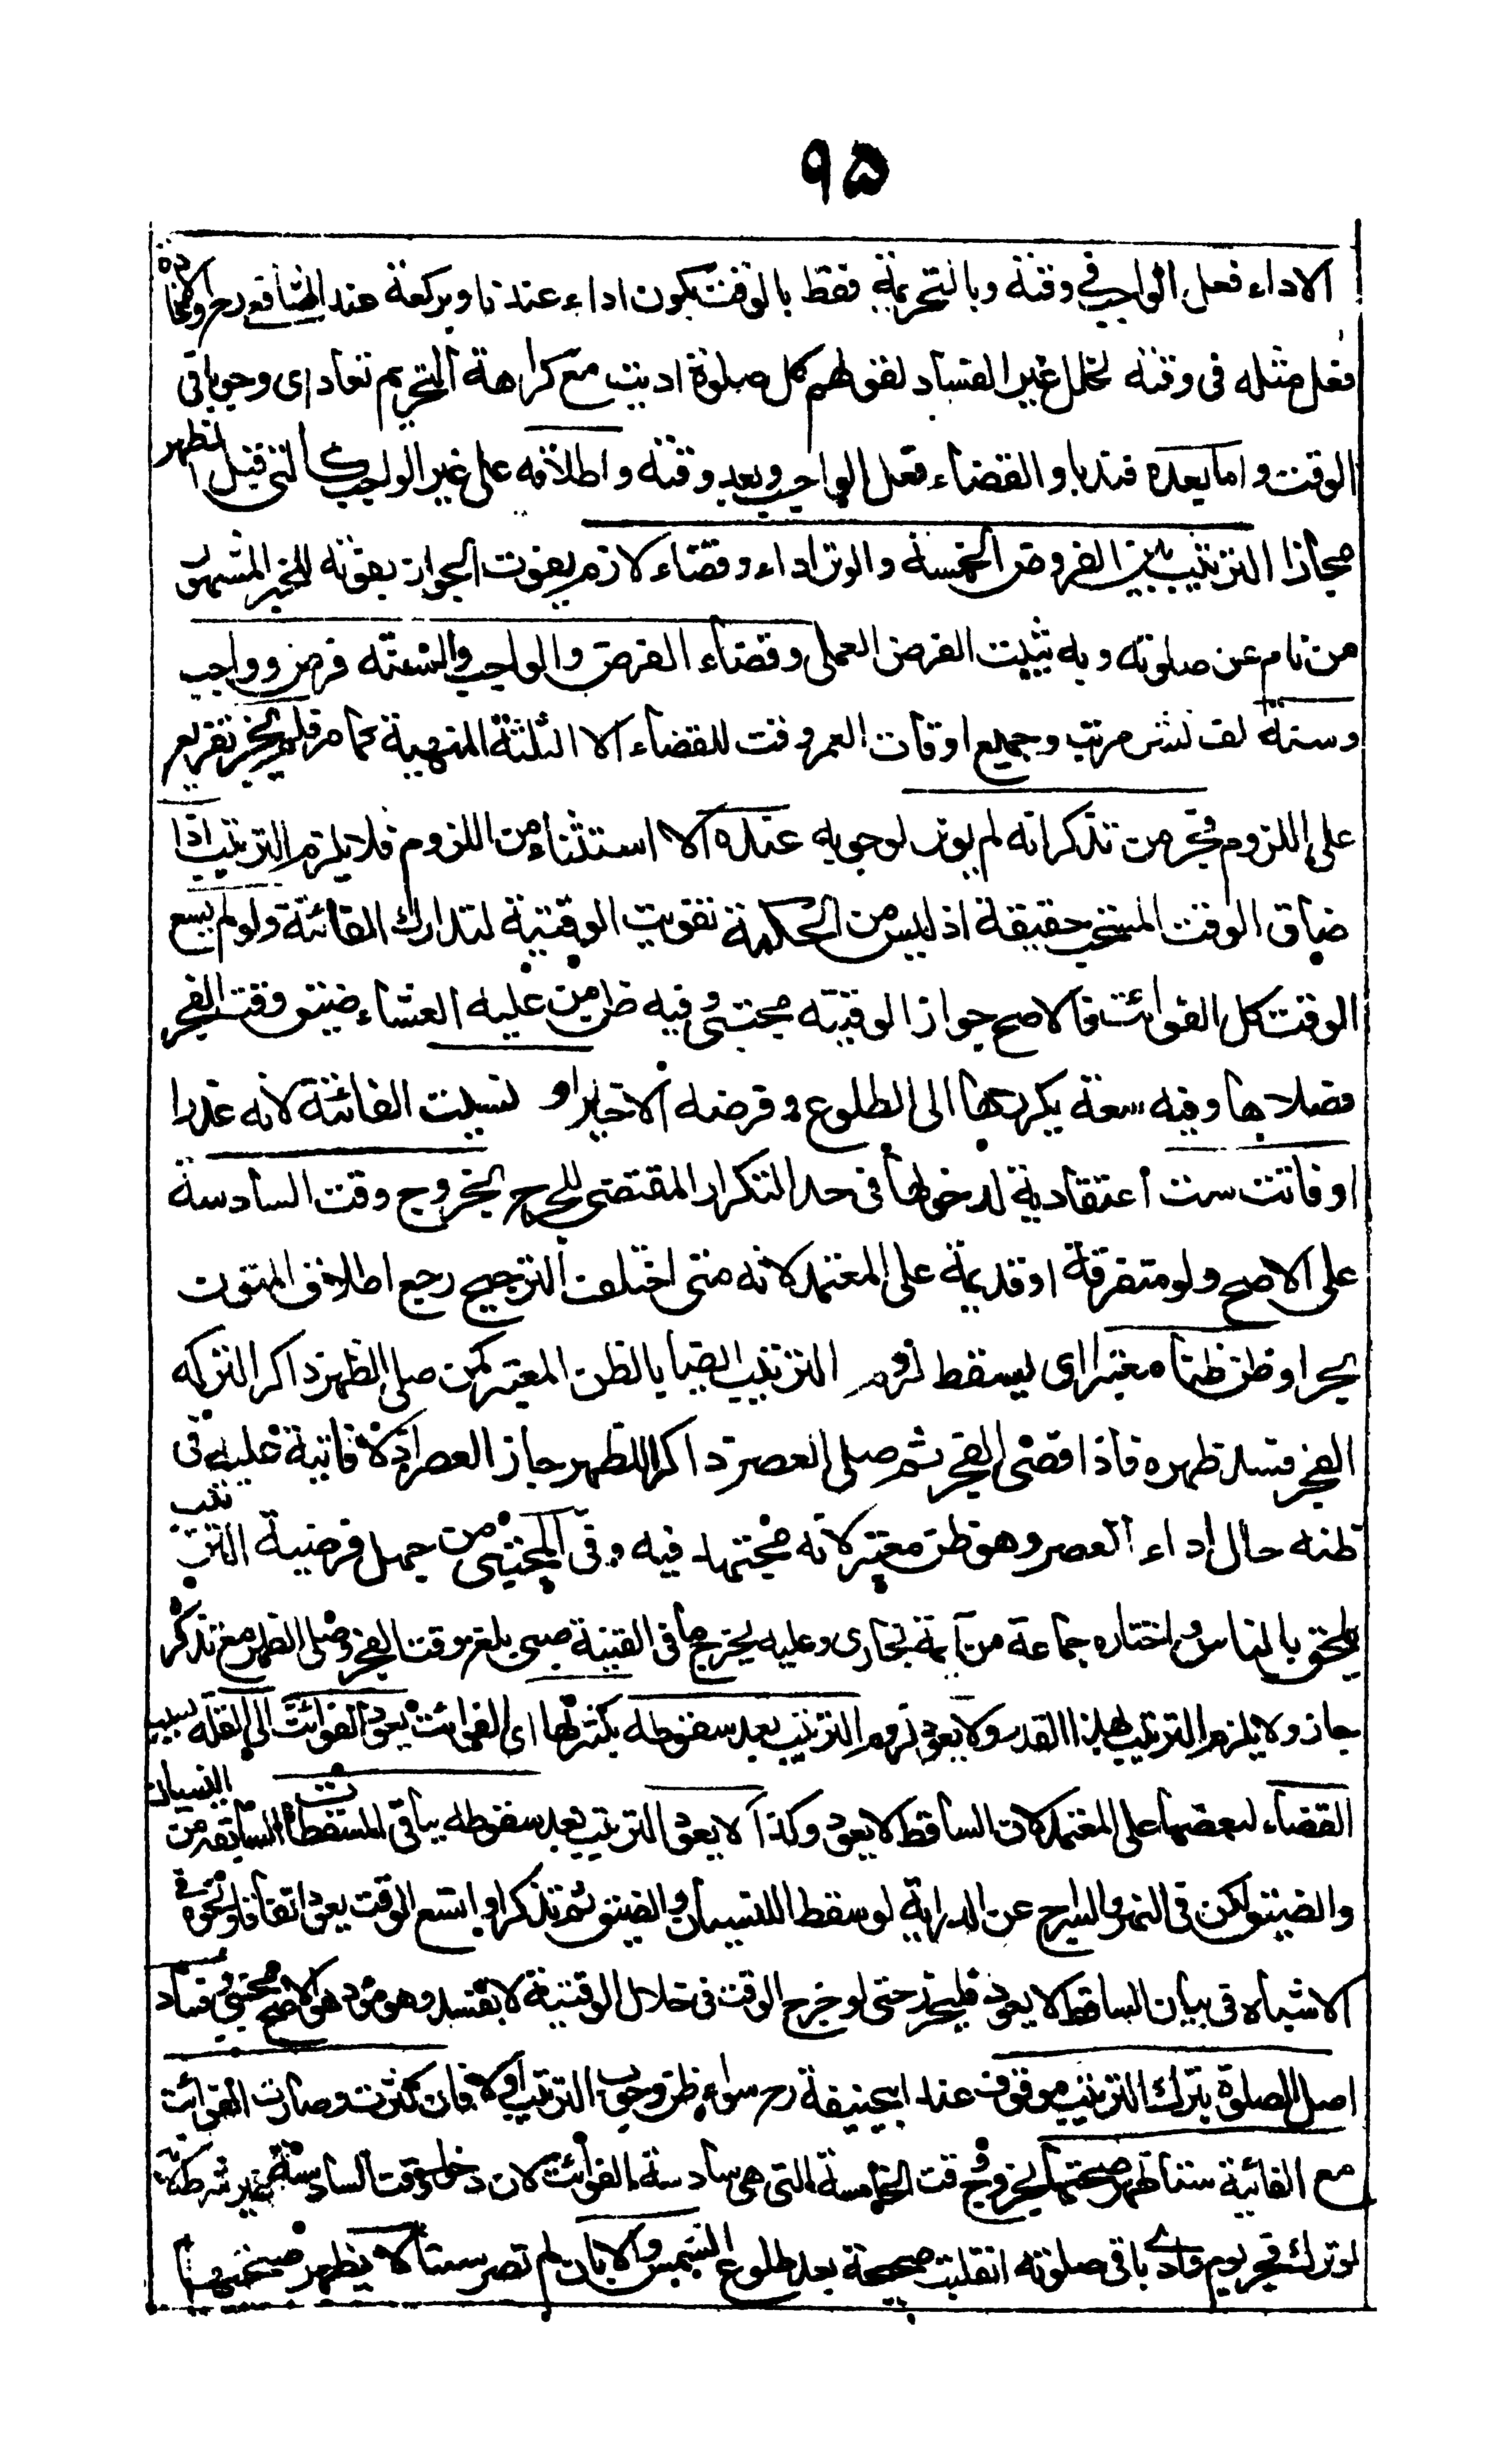 ٩٥
الاداء فعل الواجب في وقته وبالتحريمة فقط بالوقت يكون اداء عندنا وبركعة عند الشافعي رح والاعادة
فعل مثله فى وقته لخلل غير الفساد لقولهم كل صلوة اديت مع كراهة التحريم تعاد اى وجوبا فى
الوقت واما بعده فندبا والقضاء فعل الواجب وبعد وقته واطلاقه على غير الواجب كالتى قبل الظهر
مجازا الترتيب بين الفروض الخمسة والوتر اداء وقضاء لازم يفوت الجواز بفوته للخبر المشهور
من نام عن صلوته وبه يثبت الفرض العملى وقضاء الفرض والواجب والسنة فرض وواجب
وسنة لف نشر مرتب وجميع اوقات العمر وقت للقضاء الا الثلثة المنهية كما مر فلم يجز تفريع
على اللزوم فجر من تذكر انه لم يوتر لوجوبه عنده الا استثناء من اللزوم فلا يلزم الترتيب اذا
ضاق الوقت المستحب حقيقة اذ ليس من الحكمة تفويت الوقتية لتدارك الفائتة ولو لم يسع
الوقت كل الفوائت فالاصح جواز الوقتية مجتبى وفيه ظن من عليه العشاء ضيق وقت الفجر
فصلاها وفيه سعة يكررها الى الطلوع وفرضه الاخير او نسيت الفائتة لانه عذر
او فاتت ست اعتقادية لدخولها فى حد التكرار المقتضى للحرج بخروج وقت السادسة
على الاصح ولو متفرقة او قديمة على المعتمد لانه متى اختلف الترجيح رجح اطلاق المتون
بحر او ظن ظنا معتبرا اى يسقط لزوم الترتيب ايضا بالظن المعتبر كمن صلى الظهر ذاكرا لتركه
الفجر فسد ظهره فاذا قضى الفجر ثم صلى العصر ذاكرا للظهر جاز العصر اذ لا فائتة عليه فى
ظنه حال اداء العصر وهو ظن معتبر لانه مجتهد فيه وفى المجتبى من جهل فرضية الترتيب
يلحق بالناس واختاره جماعة من ائمة بخارى وعليه يخرج ما فى القنية صبى بلغ وقت الفجر وصلى الظهر مع تذكر
جاز ولا يلزم الترتيب بهذا القدر ولا يعود لزوم الترتيب بعد سقوطه بكثرتها اى الفوائت بعود الفوائت الى القلة بسبب
القضاء لبعضها على المعتمد لان الساقط لا يعود وكذا لا يعود الترتيب بعد سقوطه بباقى المسقطات السابقة من النسيان
والضيق لكن فى النهر والسراج عن الدراية لو سقط للنسيان والضيق ثم تذكر او اتسع الوقت يعود اتفاقا ونحوه فى
الاشباه فى بيان الساقط لا يعود فليحرر حتى لو خرج الوقت فى خلال الوقتية لا يفسد وهو مؤد هو الاصح مجتبى وفساد
اصل الصلوة بترك الترتيب موقوف عند ابيحنيفة رح سواء ظن وجوب الترتيب اولا فان كثرت وصارت الفوائت
مع الفائتة ستا ظهر صحتها بخروج وقت الخامسة التى هى سادسة الفوائت لان دخول وقت السادسة غير شرط لانه
لو ترك فجر يوم وادى باقى صلوته انقلبت صحيحة بعد طلوع الشمس والا بان لم تصر ستا لا يظهر صحتها